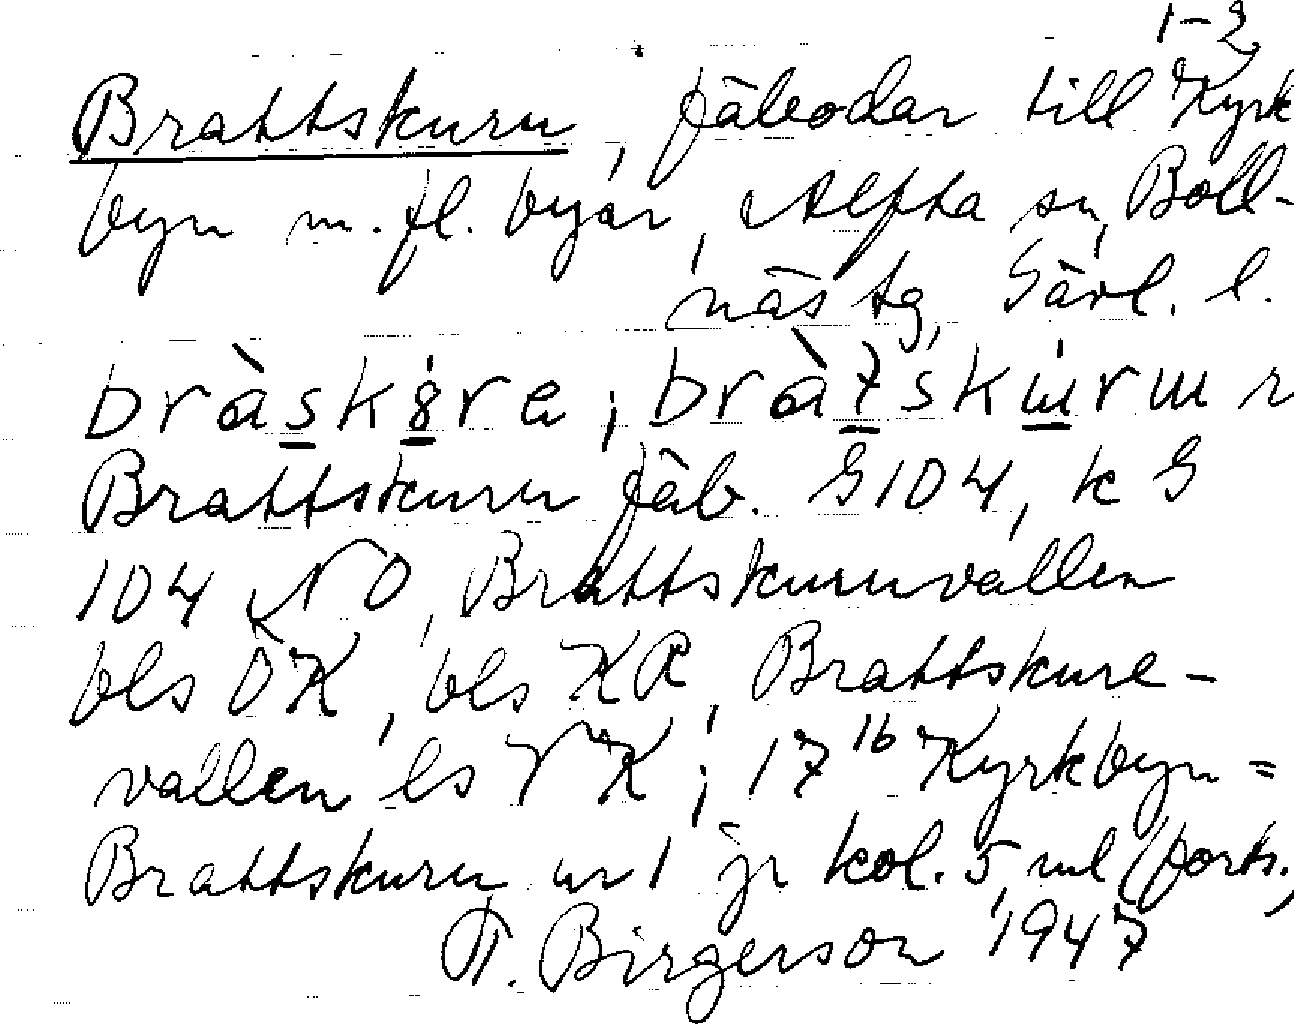 1-2
Brattskuru, fäbodar till Kyrk
byn m. fl. byar, Alfta sn, Boll-
näs tg, Gävl. l.
Brattskuru fäb. G 104, k G
104 NO, Brattskuruvallen
bls ÖK, bls KR, Brattskure-
vallen ls VK; 17¹⁶ Kyrkbyn =
Brattskuru nr 1 jr kol. 5, ml (forts.,
T. Birgerson 1947